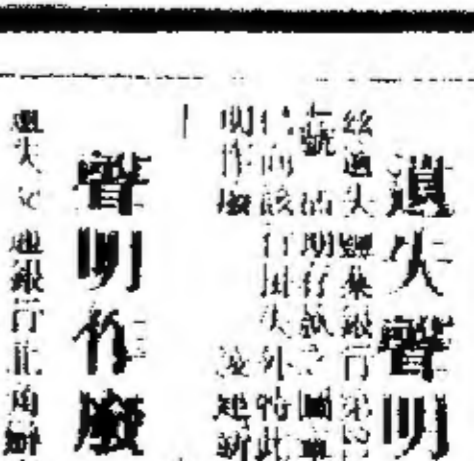 遺失聲明
茲遺失鹽業銀行第
號活期存款之圖章
已向該行掛失外特此
明作廢 凌建新
聲明作廢
遺失交通銀行北角辦